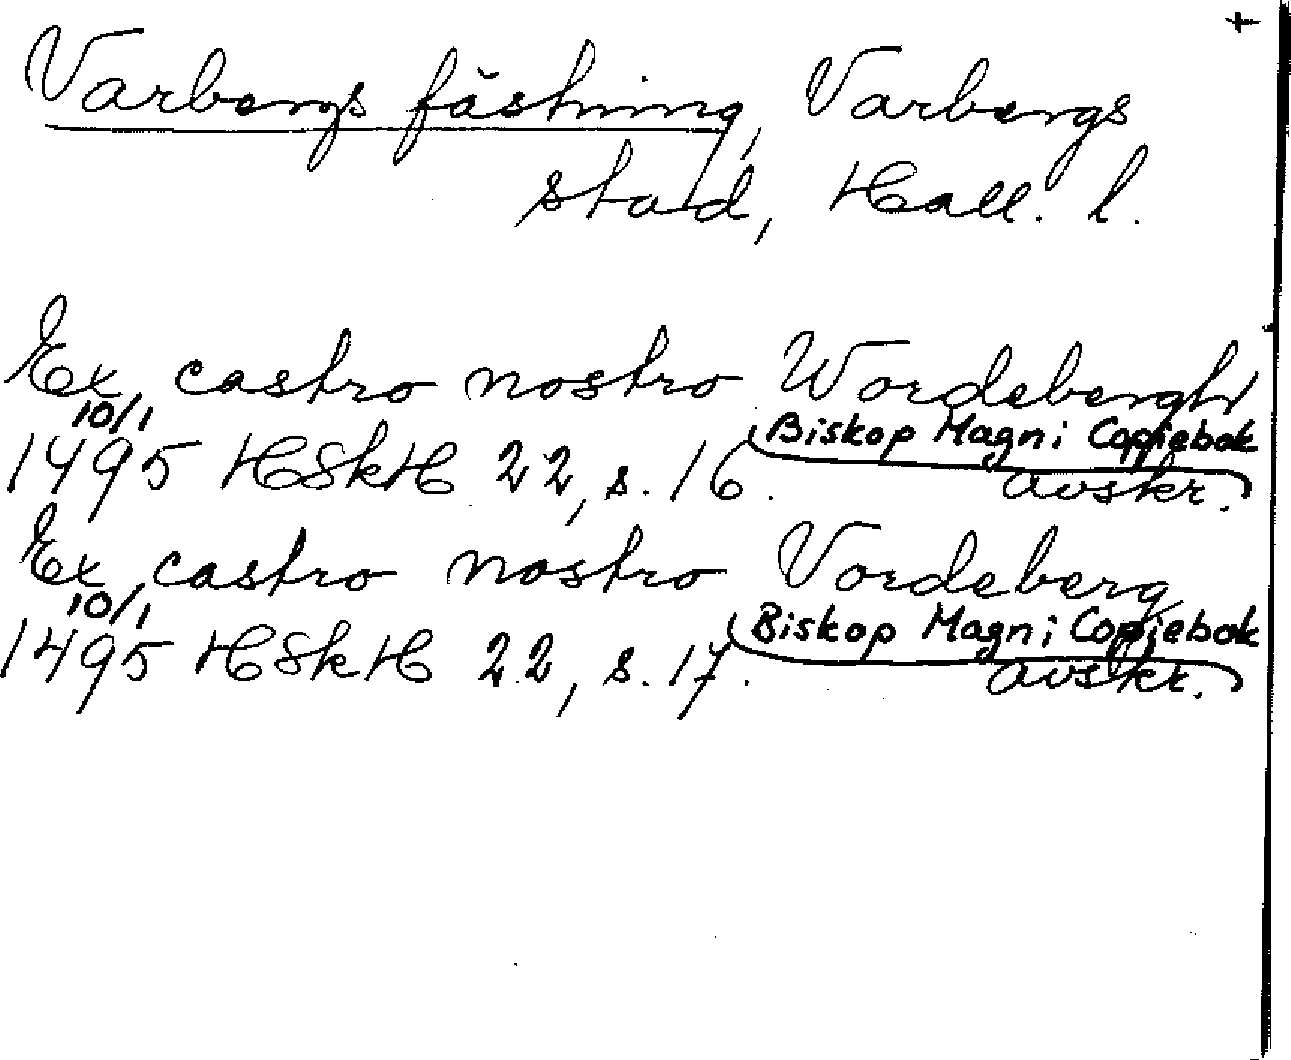 +
Varbergs fästning, Varbergs
stad, Hall. l.
Ex castro nostro Wordebergh
10/1 (Biskop Magni Copiebok
1495 HSkH 22, s. 16. avskr.)
Ex castro nostro Vordeberg
10/1 (Biskop Magni Copiebok
1495 HSkH 22, s. 17. avskr.)